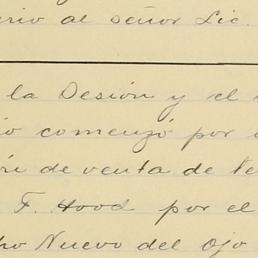 erio al señor Lic.
la Desión y el
io comenzó por
ón de venta de te
F. Hood por el
ho Nuevo del Ojo